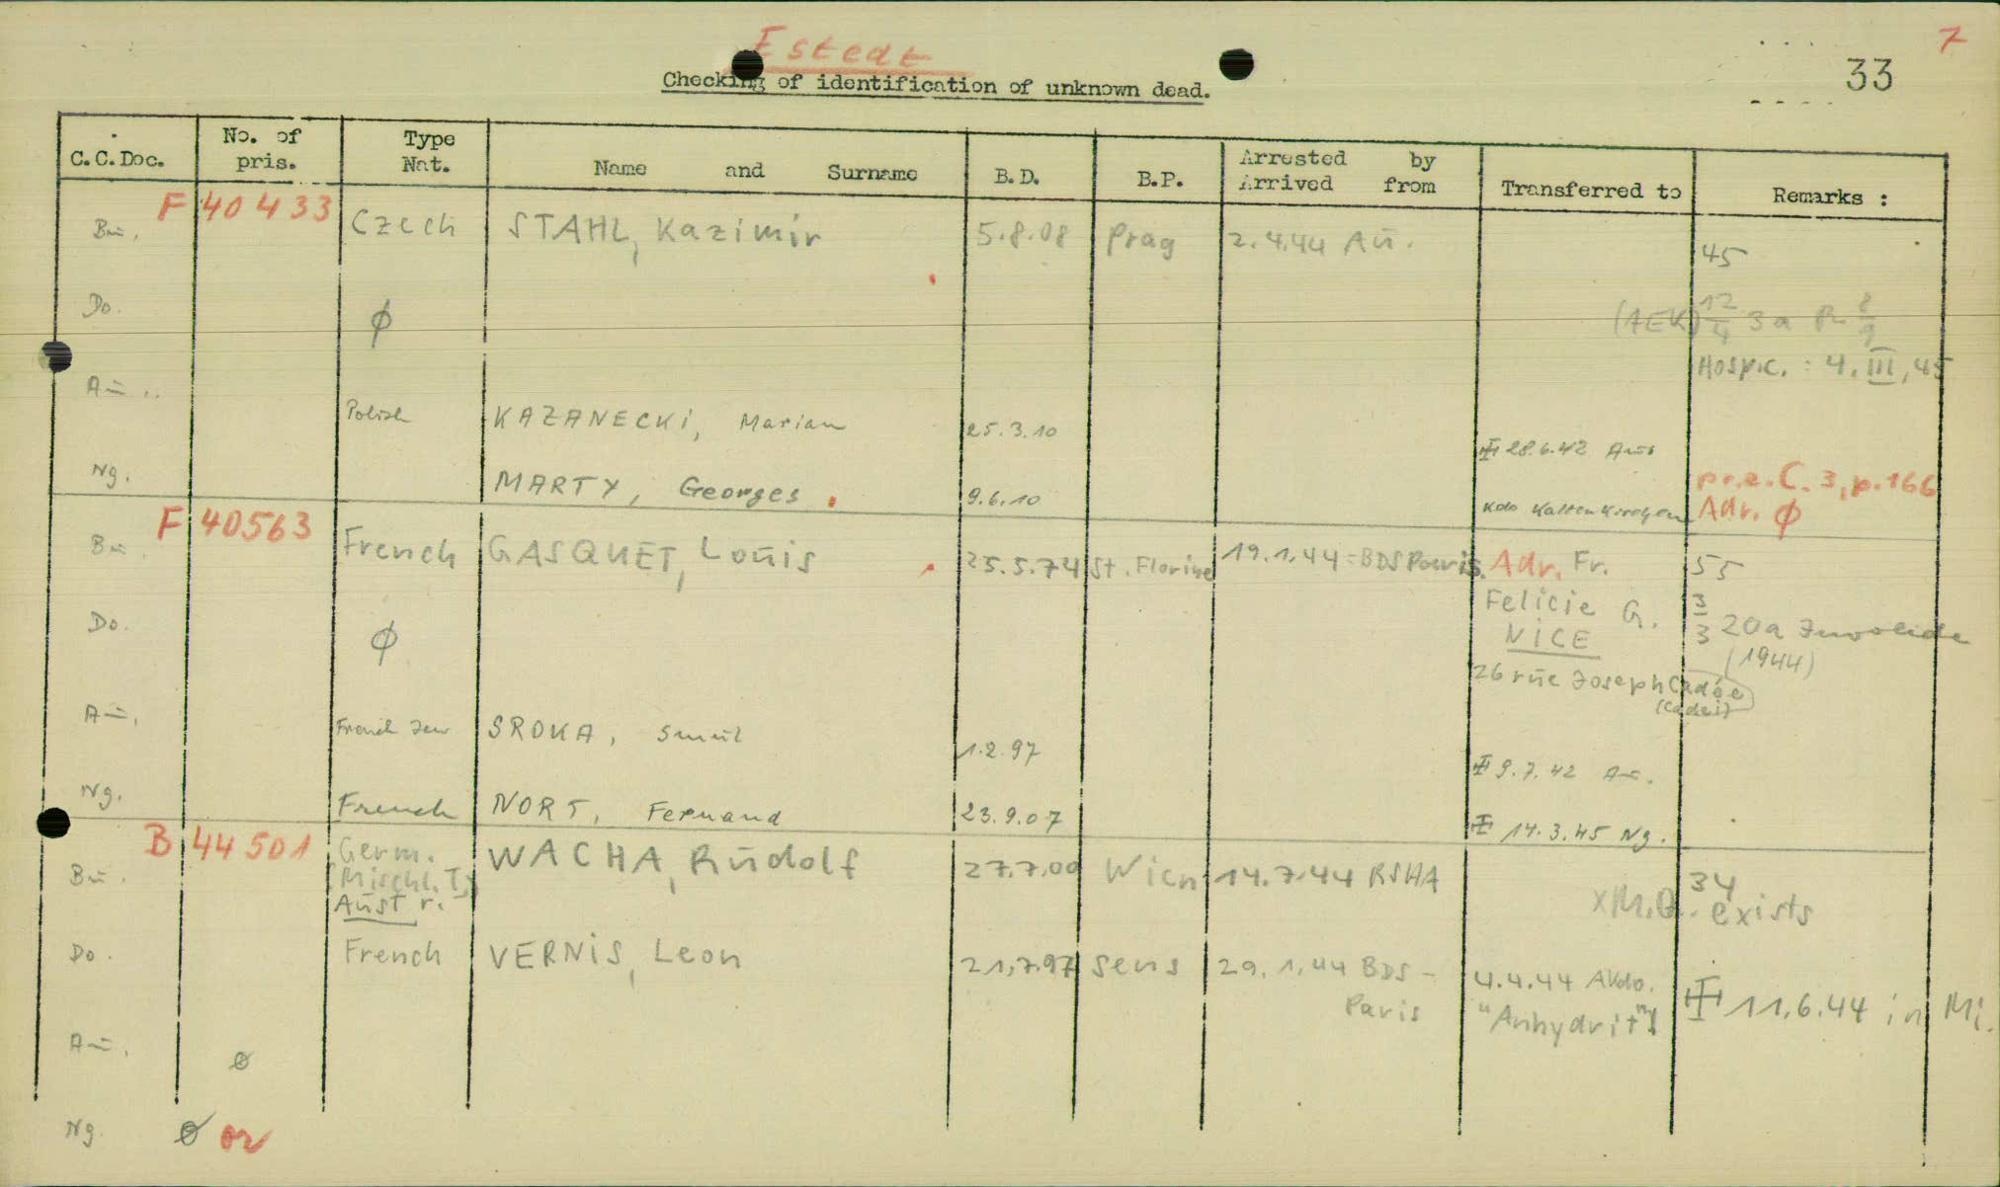 Estedt
7
Checking of identification of unknown dead.
33
C.C.Doc. No. of pris. Type Nat. Name and Surname B.D. B.P. Arrested by Arrived from Transferred to Remarks :
F 40 433
Bu. Czech STAHL, Kazimir 5.8.08 Prag 2.4.44 Au. 45
Do. ø (AEK) 12/4 3a R 8/9
Hospic. : 4. III, 45
Au. Polish KAZANECKI, Marian 25.3.10 28.6.42 Aus
Ng. MARTY, Georges 9.6.10 Kdo Kaltenkirchen pr.e.C. 3, p.166
Adr. ø
F 40563
Bu. French GASQUET, Louis 25.5.74 St. Florine 19.1.44 = BDS Paris Adr. Fr. 55
Felicie G. 3/3 20a Invalide
Do. ø NICE (1944)
26 rue Joseph Cadée
(Cadei)
Au. French Jew SROKA, Smul 1.2.97 9.7.42 Au.
Ng. French NORT, Fernand 23.9.07 14.3.45 Ng.
B 44501
Bu. Germ. WACHA, Rudolf 27.7.00 Wien 14.7.44 RSHA 34
(Mischl. I)
Austr. xM.Q. exists
Do. French VERNIS, Leon 21.7.97 Sens 29.1.44 BDS - Paris 4.4.44 AKdo. "Anhydrit" 11.6.44 in Mi.
Au. ø
Ng. ø or